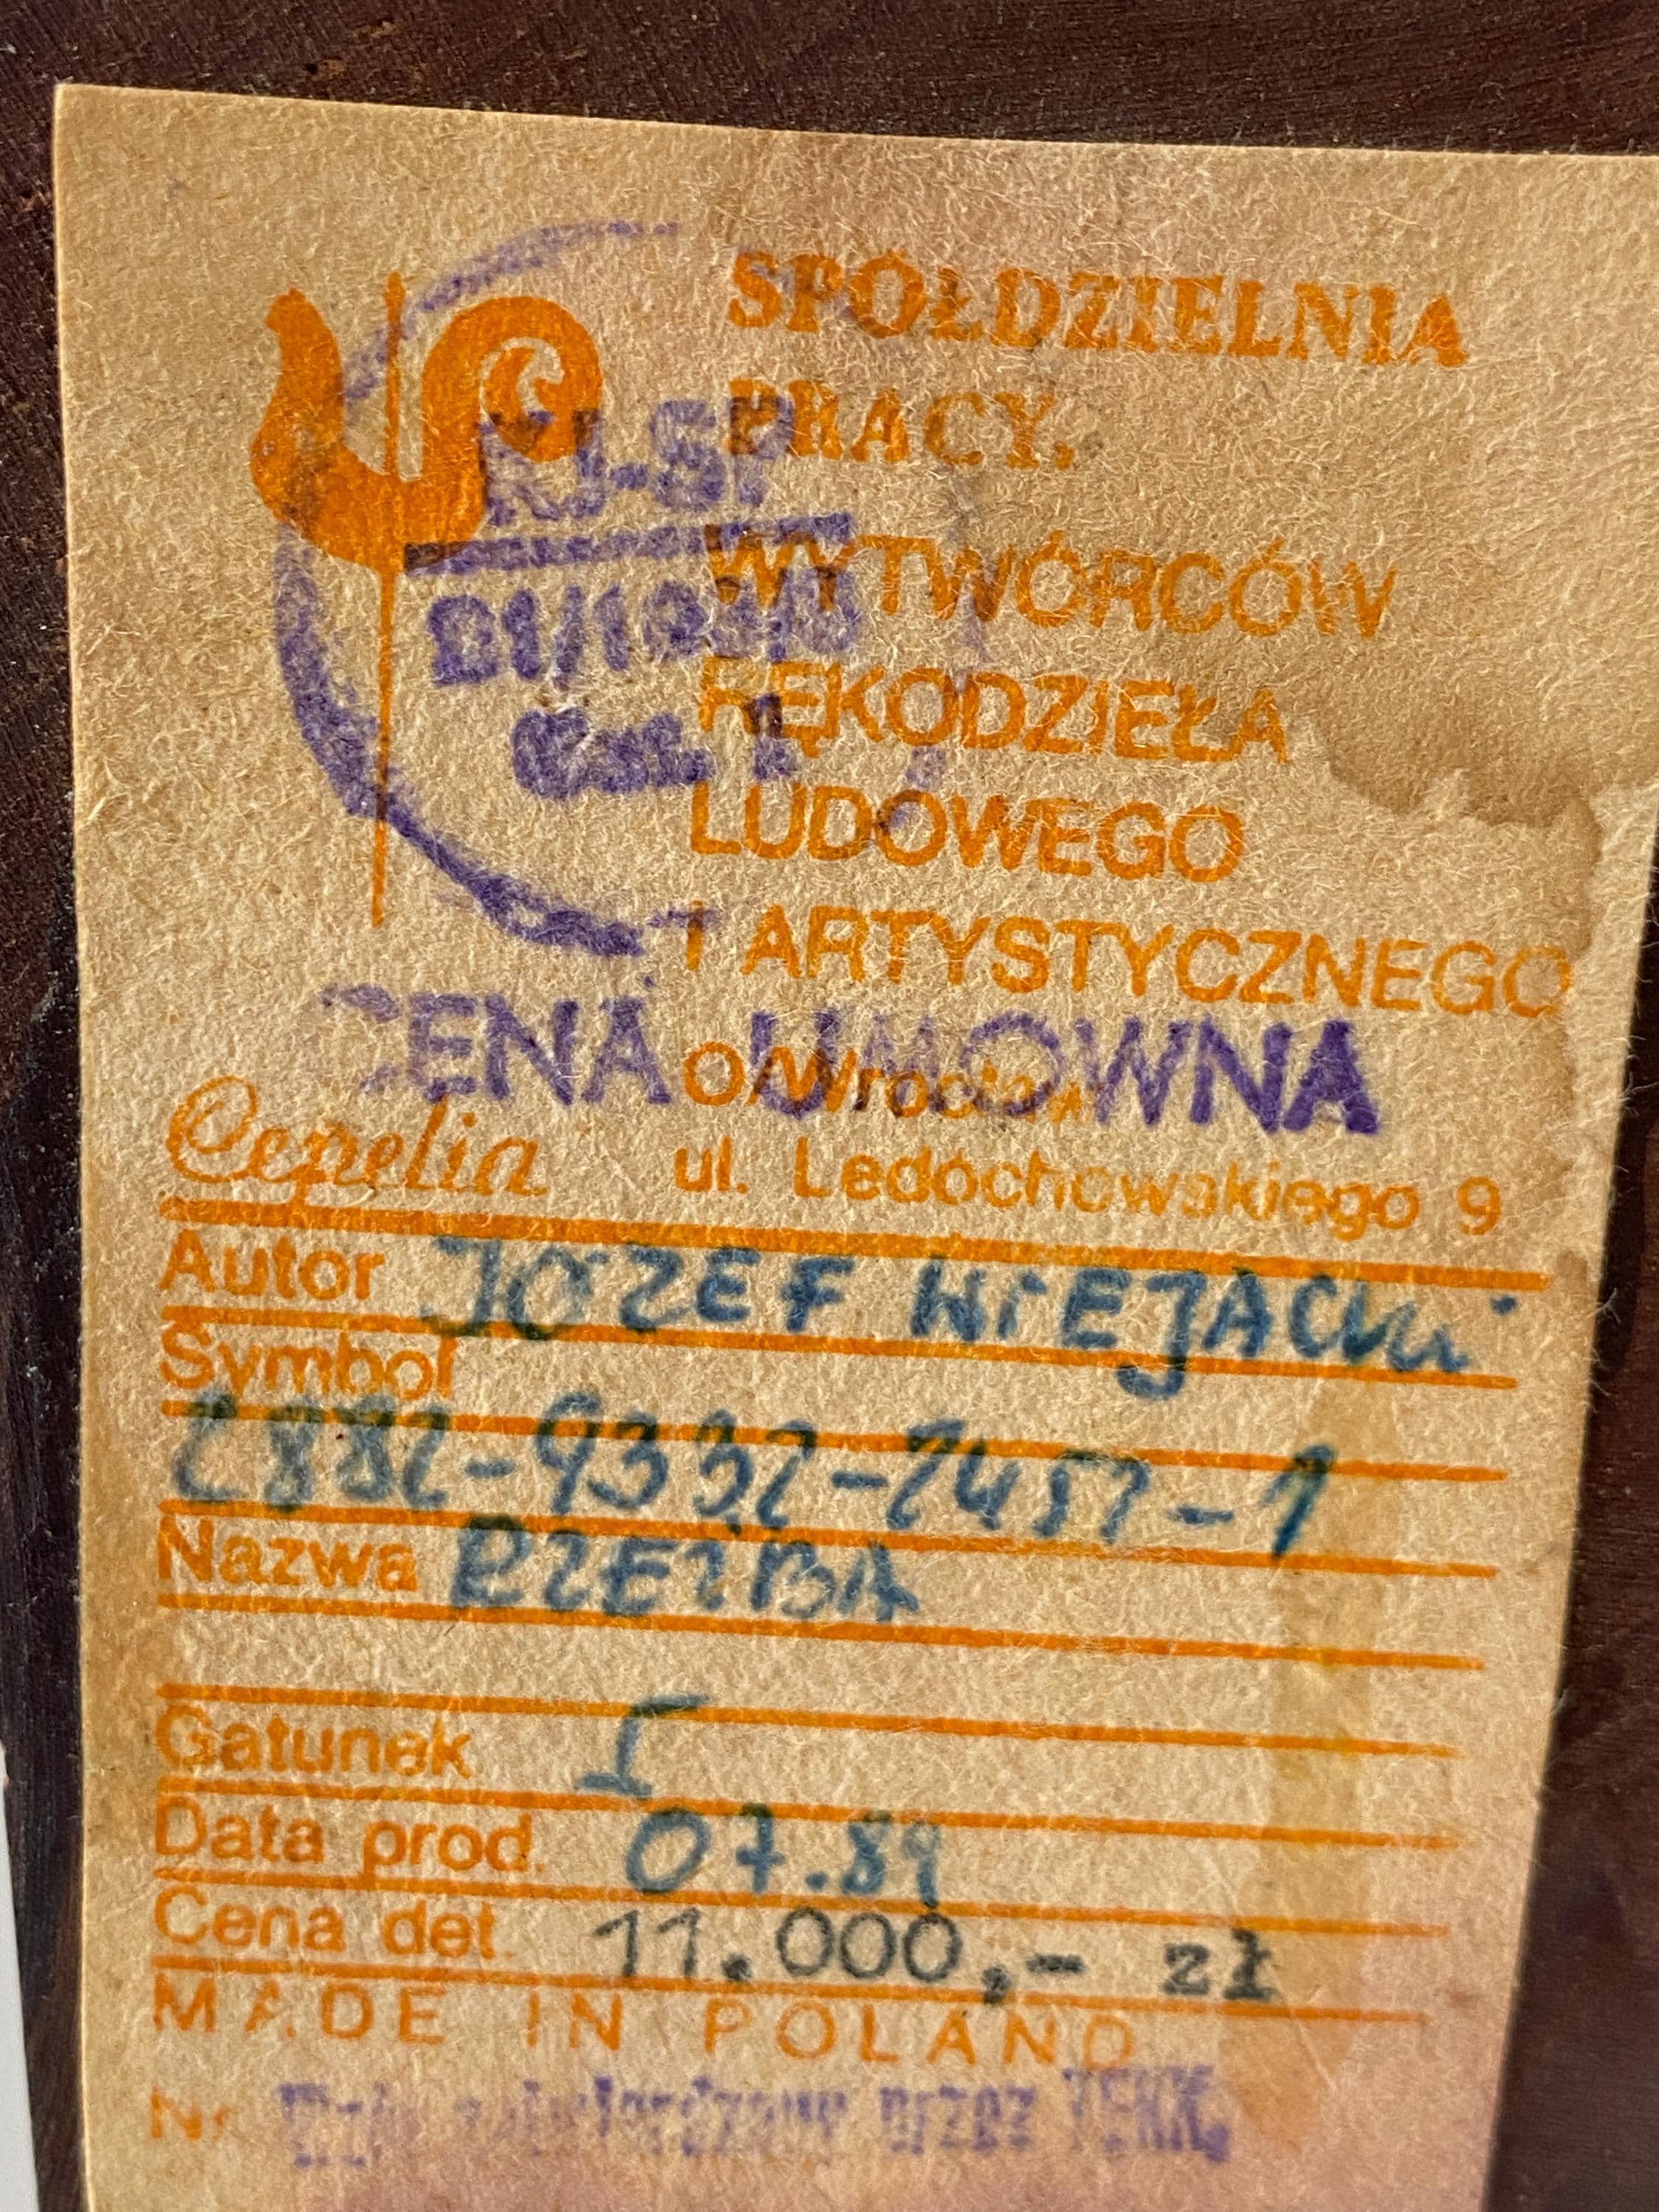 SPÓŁDZIELNIA
PRACY,
KJ-SP
WYTWÓRCÓW
RĘKODZIEŁA
LUDOWEGO
I ARTYSTYCZNEGO
CENA UMOWNA
O/Wrocław
Cepelia
ul. Ledóchowskiego 9
Autor JÓZEF WIEJACKI
Symbol
2882-9332-2452-1
Nazwa RZEŹBA
Gatunek I
Data prod. 07.89
Cena det. 11.000,- zł
MADE IN POLAND
Nr przez